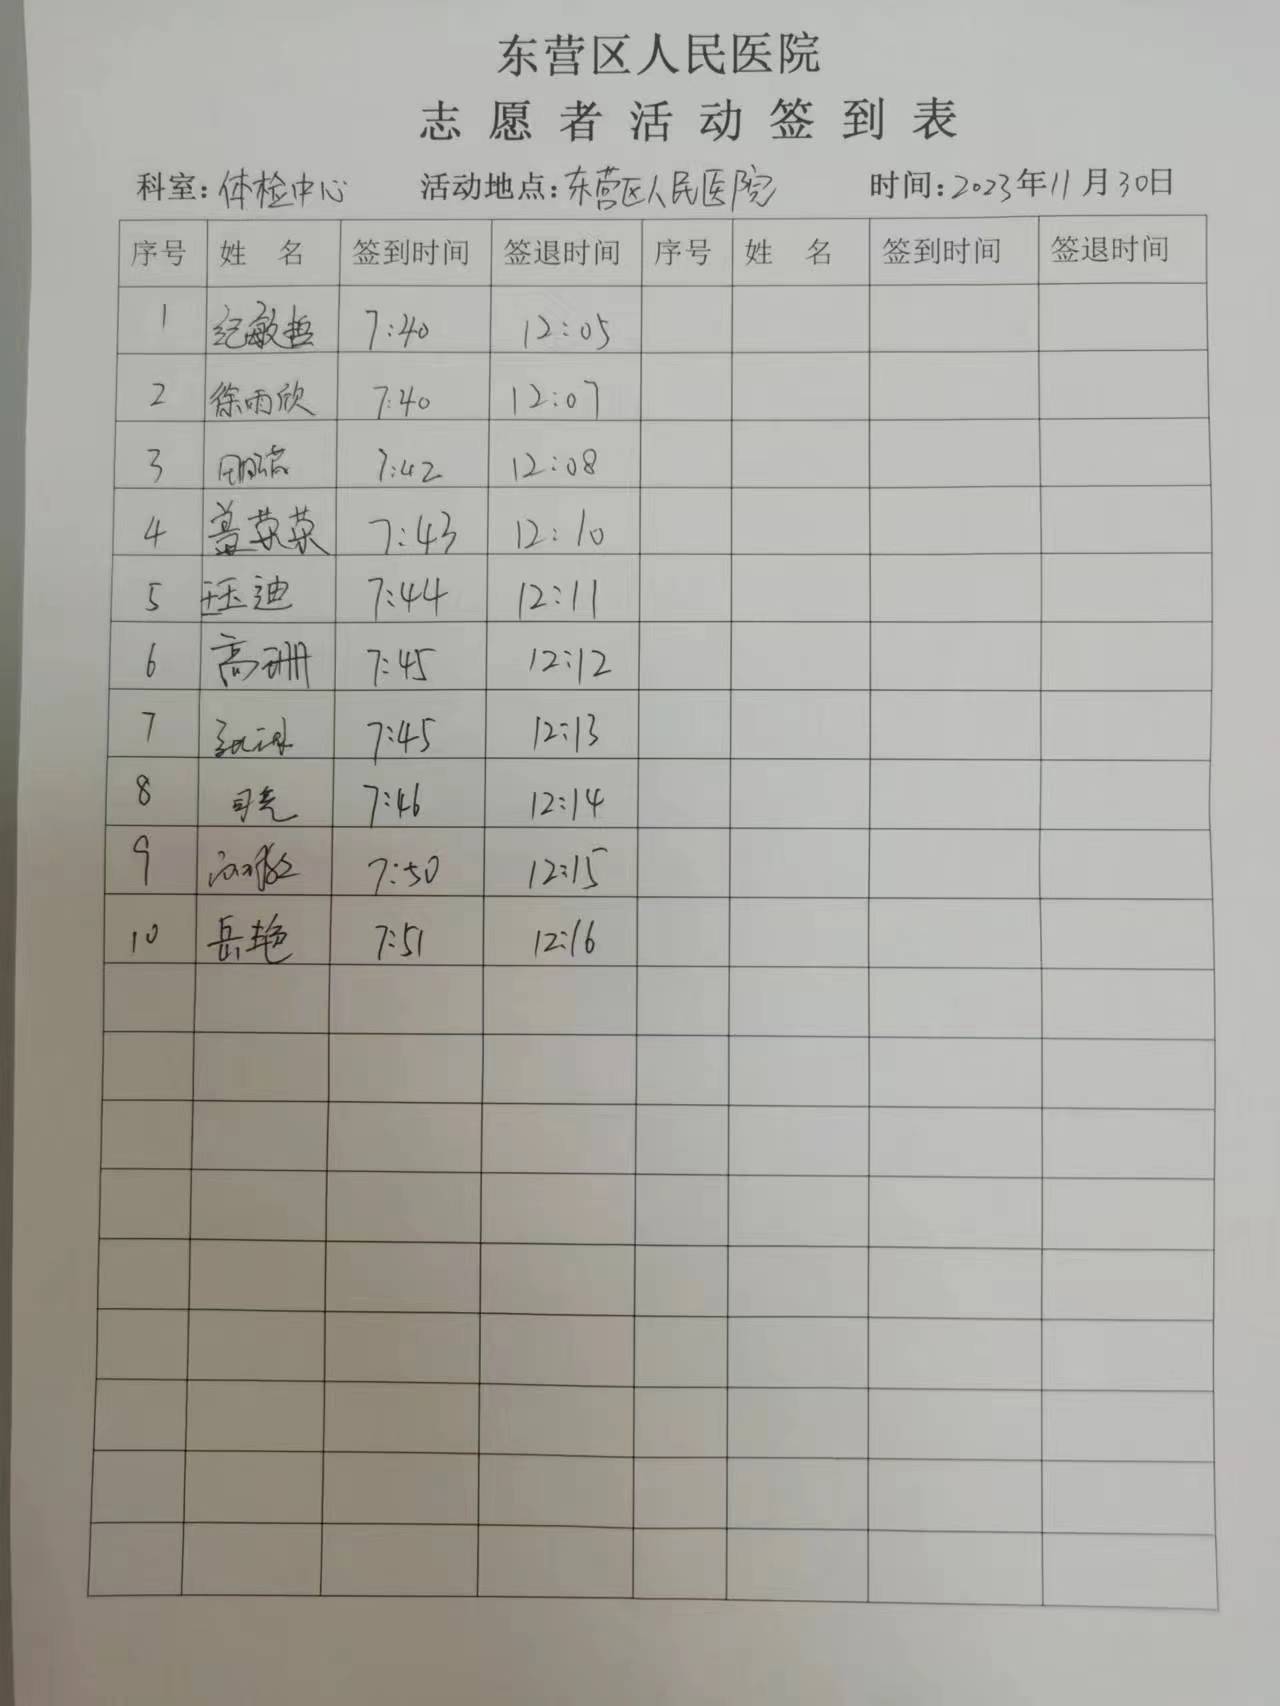 东营区人民医院
志愿者活动签到表
科室:体检中心 活动地点:东营区人民医院 时间:2023年11月30日
序号 姓名 签到时间 签退时间 序号 姓名 签到时间 签退时间
1 纪敏哲 7:40 12:05
2 徐雨欣 7:40 12:07
3 7:42 12:08
4 盖荣荣 7:43 12:10
5 王玉迪 7:44 12:11
6 高珊 7:45 12:12
7 7:45 12:13
8 司亮 7:46 12:14
9 7:50 12:15
10 岳艳 7:51 12:16